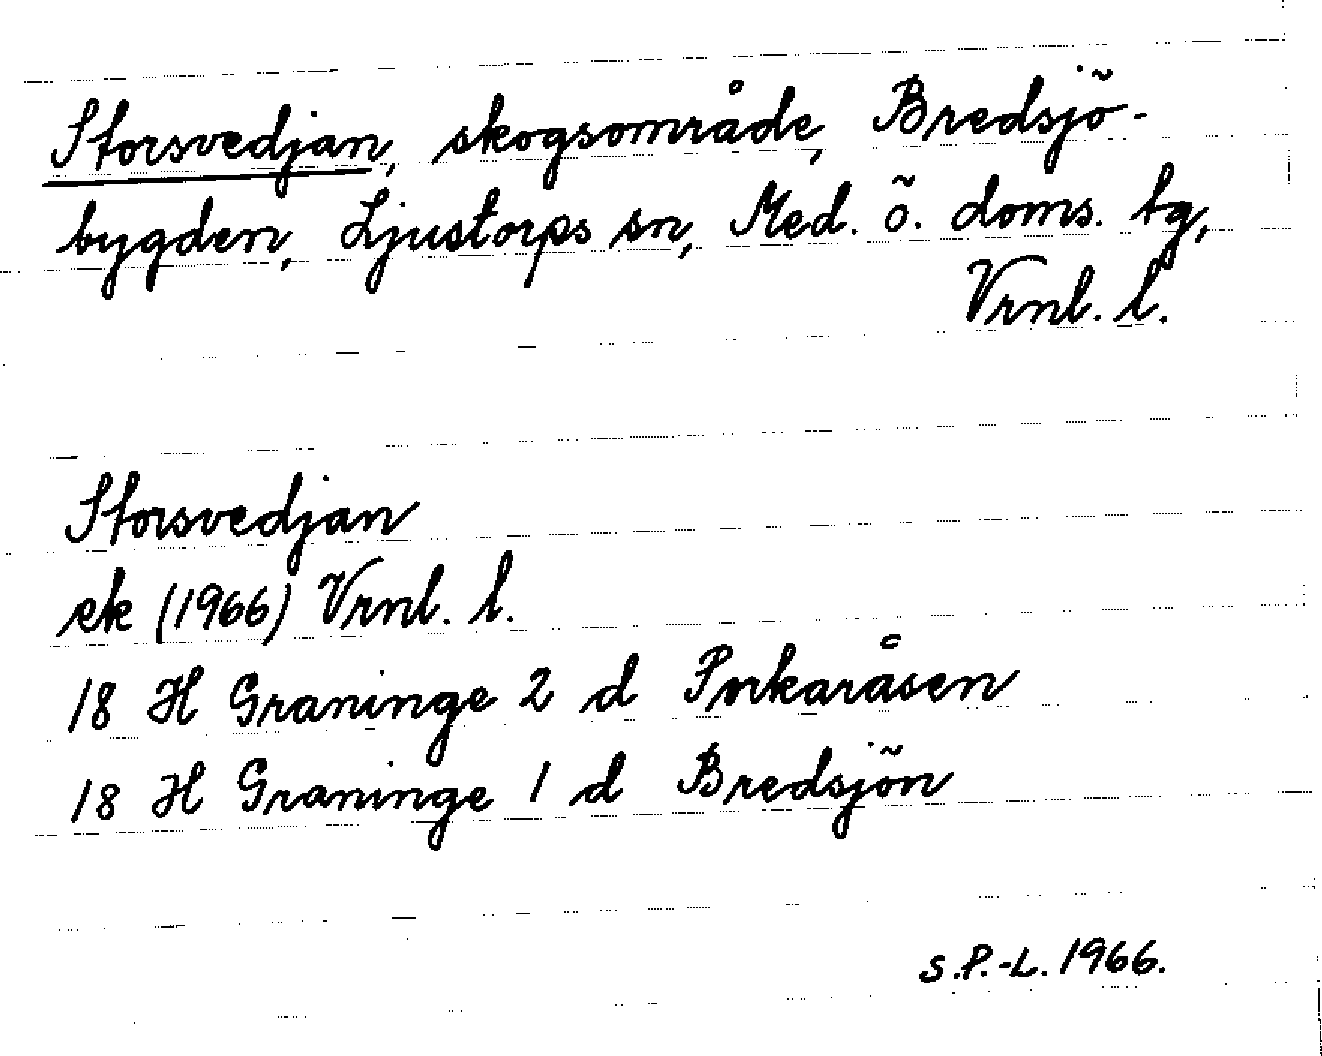 Storsvedjan, skogsområde, Bredsjö-
bygden, Ljustorps sn, Med. ö. doms. tg,
Vrnl. l.
Storsvedjan
ek (1966) Vrnl. l.
18 H Graninge 2 d Porkaråsen
18 H Graninge 1 d Bredsjön
S.P.-L. 1966.